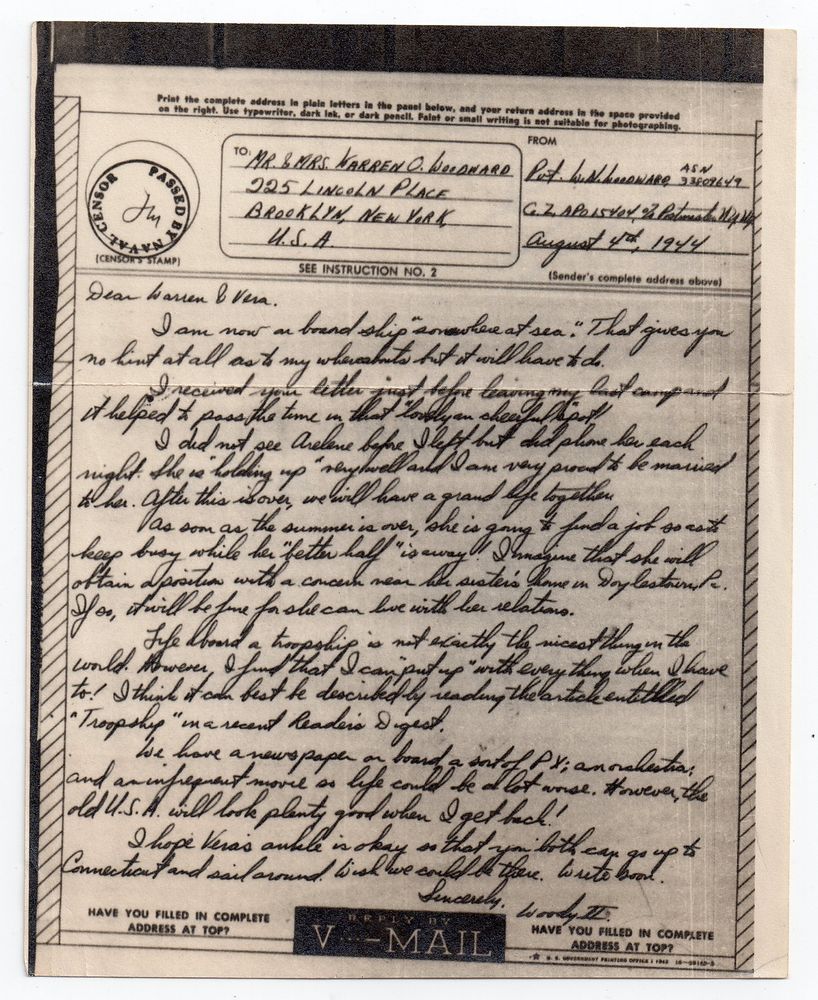 Print the complete address in plain letters in the panel below, and your return address in the space provided
on the right. Use typewriter, dark ink, or dark pencil. Faint or small writing is not suitable for photographing.
PASSED BY NAVAL CENSOR
(CENSOR'S STAMP)
TO:
MR. & MRS. WARREN O. WOODWARD
225 LINCOLN PLACE
BROOKLYN, NEW YORK
U.S.A
SEE INSTRUCTION NO. 2
FROM
Pvt. W.N. WOODWARD ASN
C.Z. APO 15404, % Postmaster N.Y., N.Y.
August 4th, 1944
(Sender's complete address above)
Dear Warren & Vera.
I am now on board ship "somewhere at sea." That gives you
no hint at all as to my whereabouts but it will have to do.
I received your letter just before leaving my last camp and
it helped to pass the time in that "lovely cheerful spot"
I did not see Arelene before I left but did phone her each
night. She is "holding up" very well and I am very proud to be married
to her. After this is over, we will have a grand life together.
As soon as the summer is over, she is going to find a job so as to
keep busy while her "better half" is away! I imagine that she will
obtain a position with a concern near her sister's home in Doylestown, Pa.
If so, it will be fine for she can live with her relations.
Life aboard a troopship is not exactly the nicest thing in the
world. However, I find that I can "put up" with everything when I have
to! I think it can best be described by reading the article entitled
"Troopship" in a recent Reader's Digest.
We have a newspaper on board, a sort of P X; an orchestra;
and an infrequent movie so life could be a lot worse. However, the
old U.S.A. will look plenty good when I get back!
I hope Vera's ankle is okay so that you both can go up to
Connecticut and sail around. Wish we could be there. Write soon.
Sincerely,
Woody II.
HAVE YOU FILLED IN COMPLETE
ADDRESS AT TOP?
REPLY BY
V···—MAIL
HAVE YOU FILLED IN COMPLETE
ADDRESS AT TOP?
U. S. GOVERNMENT PRINTING OFFICE : 1943